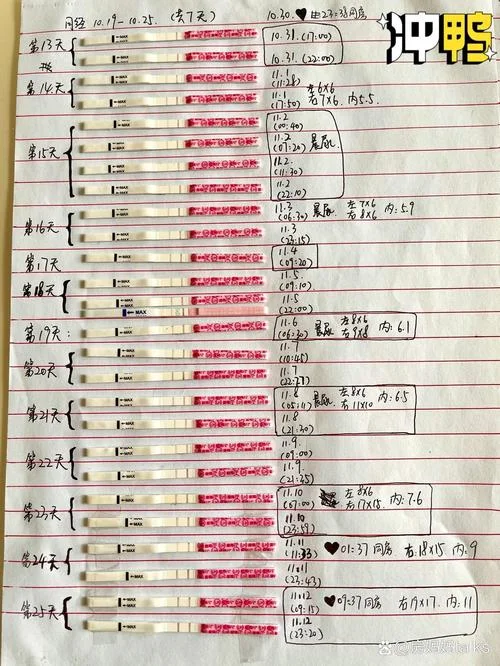 月经 10.19-10.25. (共7天) 10.30. ❤ 23:38同房
冲鸭
第13天 10.31.(17:00)
10.31.(22:00)
第14天 11.1 (11:28) 左6x6
11.1 (17:50) 右7x6. 内5.5.
第15天 11.2 (00:40)
11.2 (07:20) 晨尿
11.2. (11:30)
11.2 (22:10)
第16天 11.3 (06:30) 晨尿 左7x6 右8x6 内:5.9
11.3 (23:15)
第17天 11.4 (09:20)
第18天 11.5. (09:10)
11.5 (22:00)
第19天: 11.6 (06:30) 晨尿 左8x6 右9x8 内:6.1
第20天 11.7 (10:45)
11.7
第21天 11.8 (05:11) 晨尿 左8x6 右11x10 内:6.5
11.8 (21:30)
第22天 11.9. (09:00)
11.9. (21:35)
第23天 11.10 (07:00) 左8x6 右17x15. 内:7.6
11.10 (23:59)
第24天 11.11 (11:33) ❤01:37同房 右:18x15 内:9
11.11 (23:43)
第25天 11.12 (09:15) ❤09:37同房 右19x17. 内:11
11.12 (23:20)
MAX